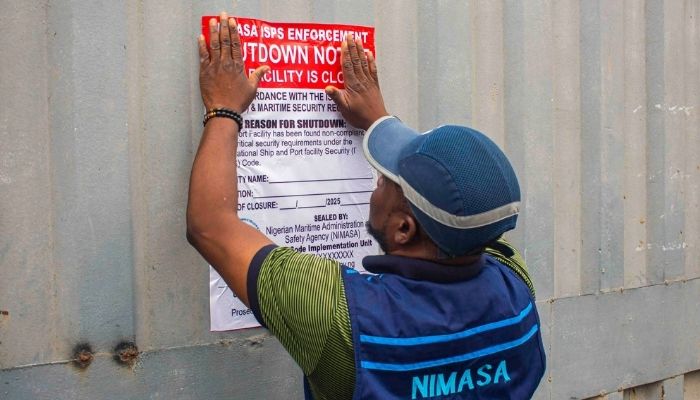 ASA ISPS ENFORCEMENT
UTDOWN NOT
FACILITY IS CLO
ORDANCE WITH THE IS
& MARITIME SECURITY REG
REASON FOR SHUTDOWN:
ort Facility has been found non-complian
ritical security requirements under the
national Ship and Port facility Security (I
) Code.
ITY NAME:
TION:
OF CLOSURE: ___/___/2025
SEALED BY:
Nigerian Maritime Administration a
Safety Agency (NIMASA)
ode Implementation Unit
XXXXXXXX
Prosec
NIMASA